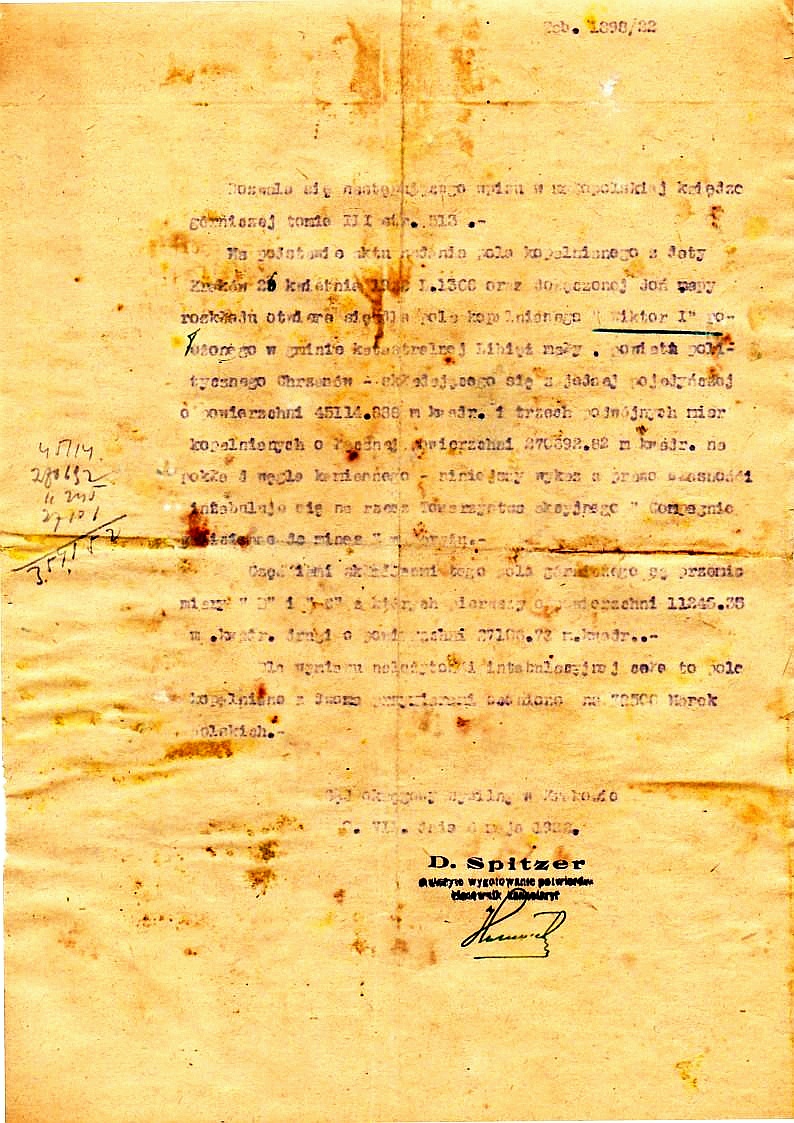 Tcb. 1898/22
Dozwala się następującego wpisu w małopolskiej księdze
górniczej tomie III str. 313 .-
Na podstawie aktu nadania pola kopalnianego z daty
Kraków 26 kwietnia 1922 L.1308 oraz dołączonej doń mapy
rozkładu otwiera się dla pola kopalnianego " Wiktor I" po-
łożonego w gminie katastralnej Libiąż mały , powiatu poli-
tycznego Chrzanów - składającego się z jednej pojedyńczej
o powierzchni 45114.838 m kwadr. i trzech podwójnych miar
kopalnianych o łącznej powierzchni 270692.82 m kwadr. na
węgla kamiennego - niniejszy wykaz a prawo własności
intabuluje się na rzecz Towarzystwa akcyjnego " Compagnie
de mines "
tego pola górniczego są przemia
miary " B" i " C" z których pierwszy o powierzchni 11245.35
m .kwadr. drugi o powierzchni 27100.73 m.kwadr..-
Dla wymiaru należytości intabulacyjnej całe to pole
kopalniane z dwoma przymiarami oceniono na 72500 Marek
polskich.-
Sąd okręgowy cywilny w Krakowie
O. VII. dnia maja 1922.
D. Spitzer
Należyte wygotowanie potwierdza
Kierownik kancelaryi
45114.
270692
11 245
27101